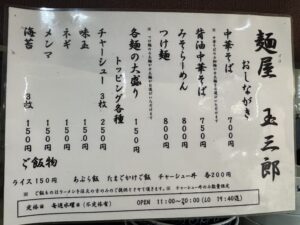 麺屋 玉三郎
おしながき
中華そば 700円
背油中華そば 750円
みそらーめん 800円
つけ麺 800円
各麺の大盛り 150円
トッピング各種
チャーシュー 3枚 250円
味玉 100円
ネギ 150円
メンマ 150円
海苔 3枚 150円
ご飯物
ライス150円 あぶら飯 たまごかけご飯 チャーシュー丼 各200円
定休日 毎週水曜日(不定休有) OPEN 11:00~20:00(LO 19:40迄)